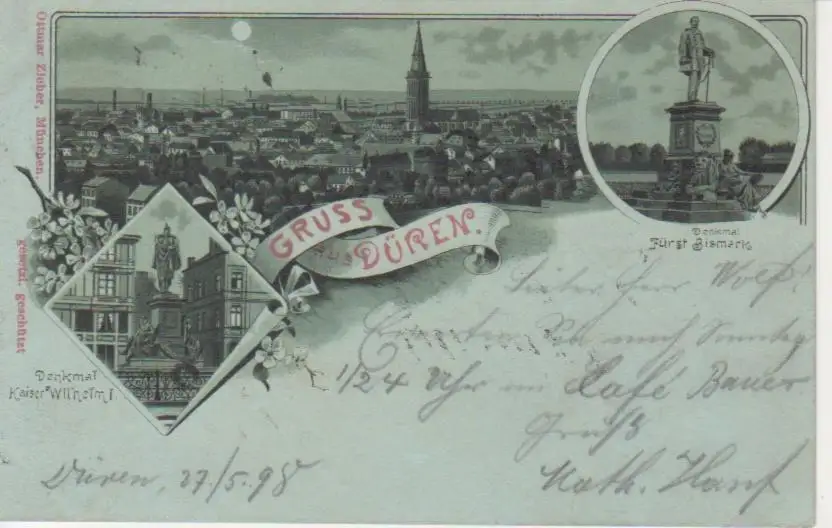 Ottmar Zieher, München.
gesetzl. geschützt
GRUSS
AUS
DÜREN.
Denkmal
Fürst Bismark
Denkmal
Kaiser Wilhelm I.
Lieber Herr Wolf!
Sie mich Sonntag
1/2 4 Uhr im Café Bauer
Gruß
Math. Hanf
Düren, 27/5.98